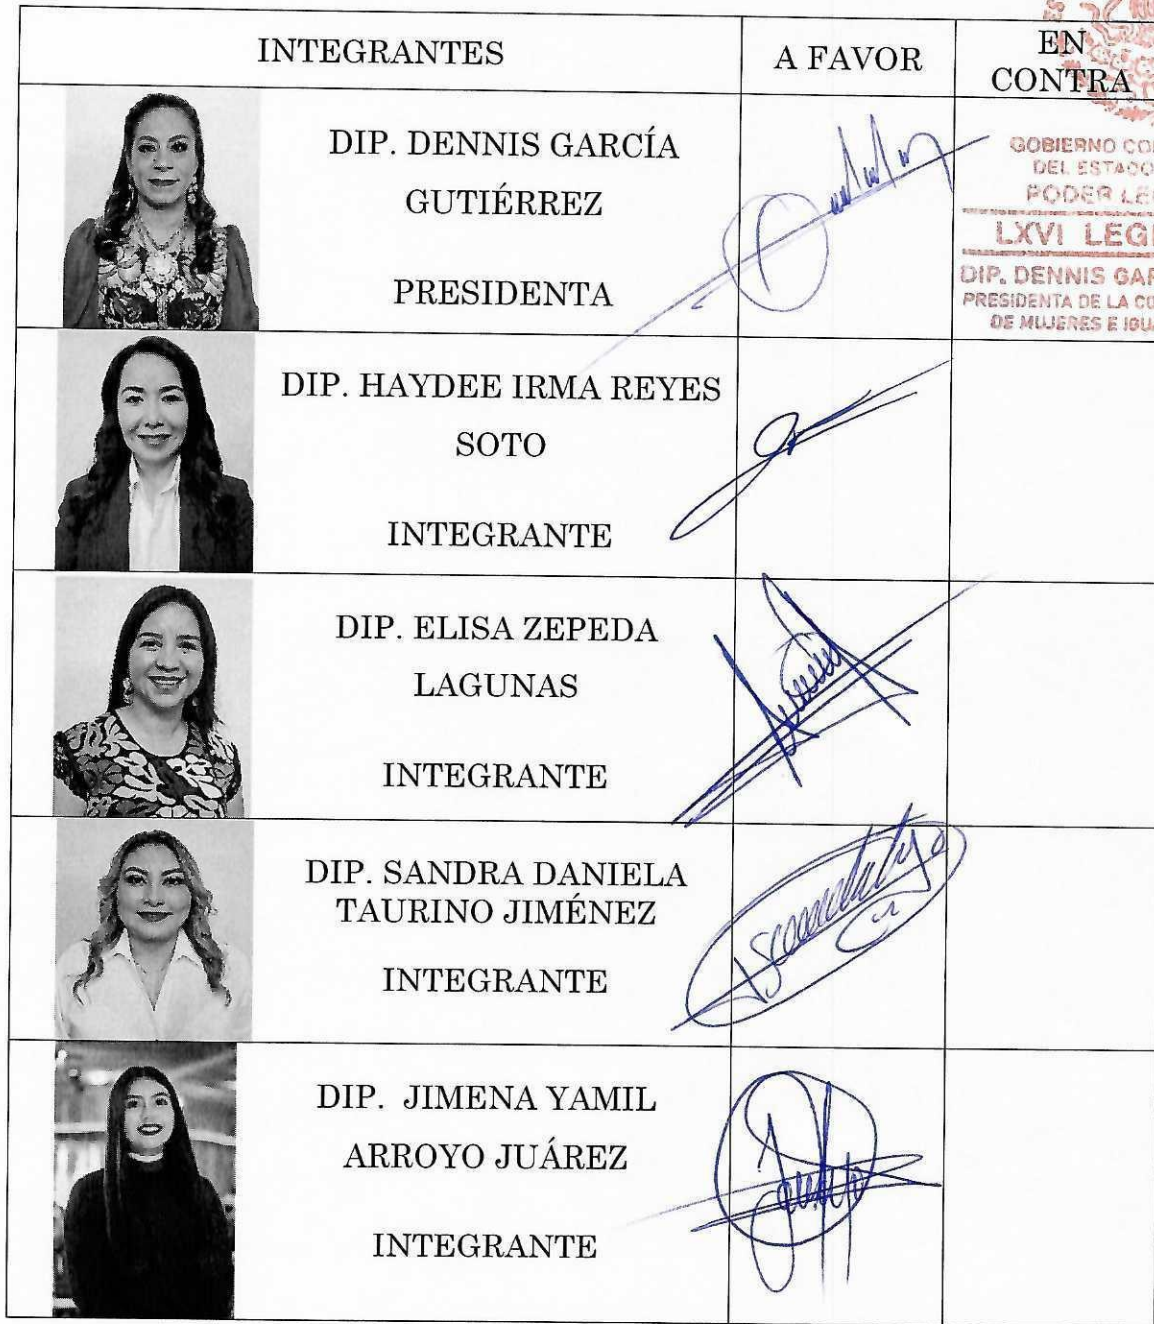 INTEGRANTES
A FAVOR
EN
CONTRA
DIP. DENNIS GARCÍA
GUTIÉRREZ
PRESIDENTA
GOBIERNO CO
DEL ESTADO
PODER LE
LXVI LEGI
DIP. DENNIS GAR
PRESIDENTA DE LA CO
DE MUJERES E IGU
DIP. HAYDEE IRMA REYES
SOTO
INTEGRANTE
DIP. ELISA ZEPEDA
LAGUNAS
INTEGRANTE
DIP. SANDRA DANIELA
TAURINO JIMÉNEZ
INTEGRANTE
DIP. JIMENA YAMIL
ARROYO JUÁREZ
INTEGRANTE